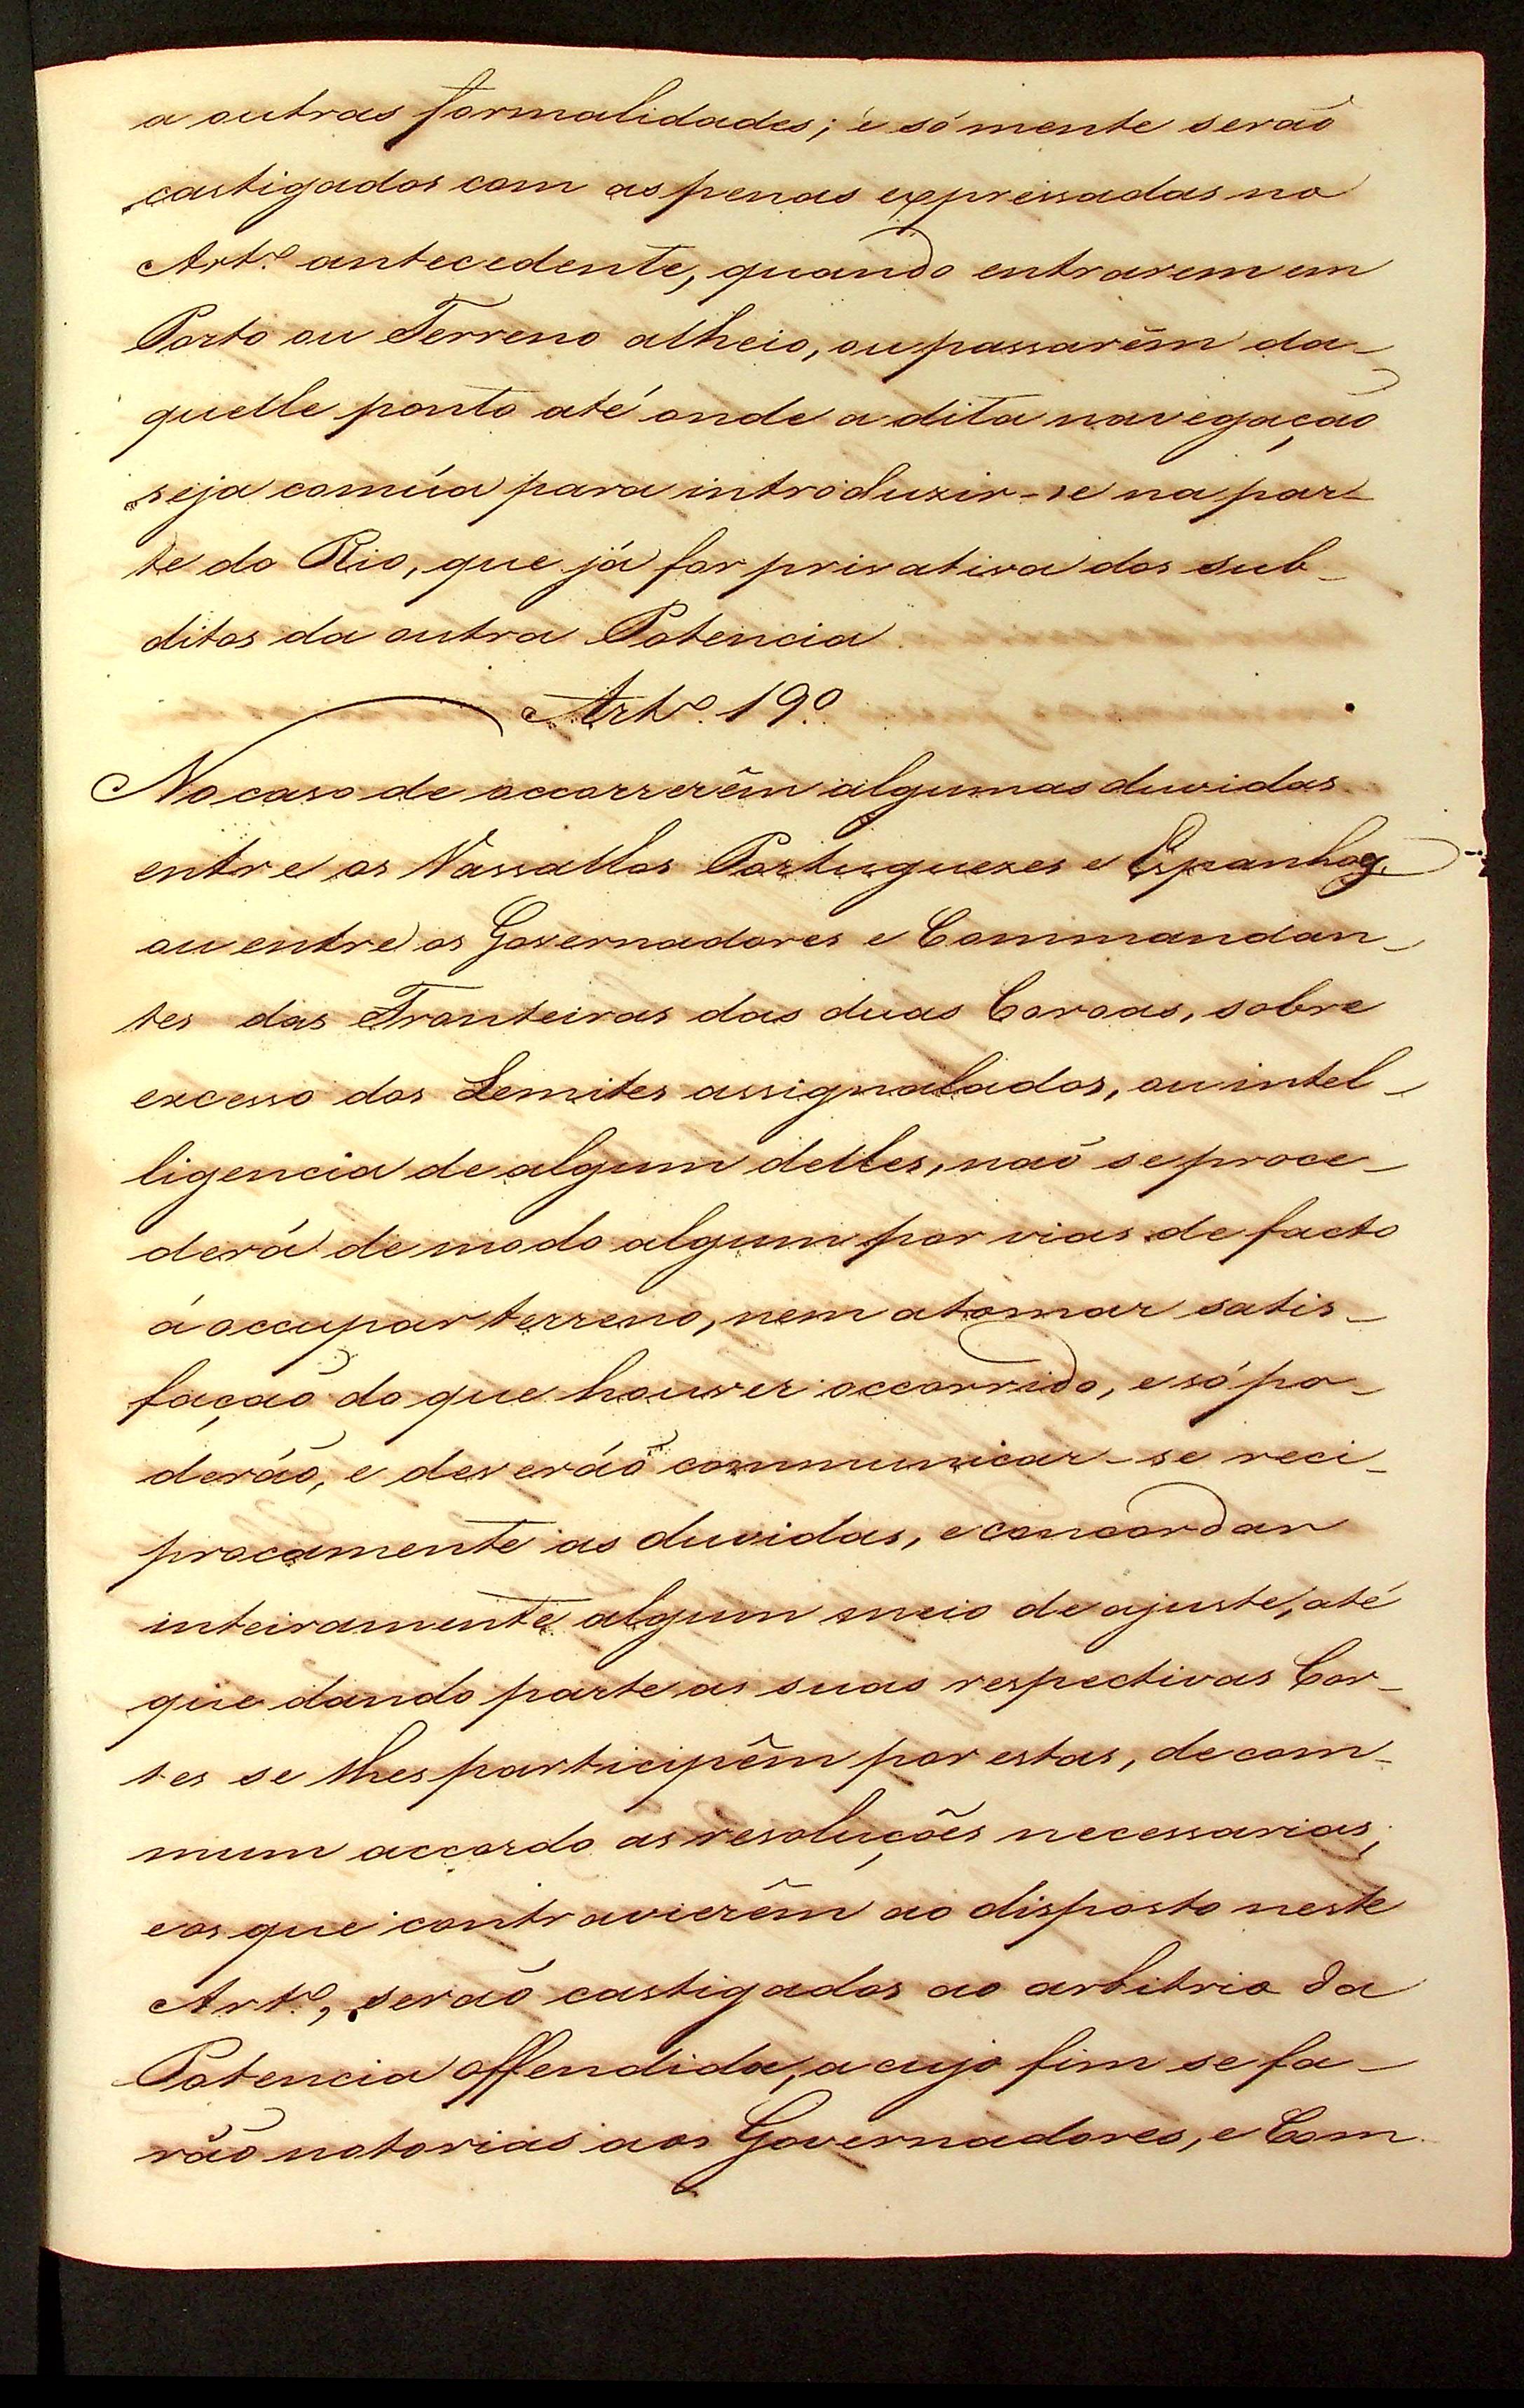 a outras formalidades; e só mente serão
castigados com as penas expressadas no
Artº antecedente, quando entrarem em
Porto ou Terreno alheio, ou passarêm da-
quelle ponto até onde a dita navegação
seja comúa para introduzir-se na par-
te do Rio, que já for privativa dos sub-
ditos da outra Potencia
Artº 19º
No caso de occorrerêm algumas duvidas
entre os Vassallos Portuguezes e Espanhoes,
ou entre os Governadores e Commandan-
tes das Fronteiras das duas Coroas, sobre
excesso dos Lemites assignalados, ou intel-
ligencia de algum delles, naõ se proce-
derá de modo algum por vias de facto
á occupar terreno, nem a tomar satis-
façaõ do que houver occorrido, e só po-
deráõ, e deveráõ communicar-se reci-
procamente as duvidas, e concordar
inteiramente algum meio de ajuste, até
que dando parte as suas respectivas Cor-
tes se lhes participêm por estas, de com-
mum accordo as resoluções necessarias;
e os que contravierêm ao disposto neste
Artº, serão castigados ao arbitrio da
Potencia offendida, a cujo fim se fa-
rão notorias aos Governadores, e Com